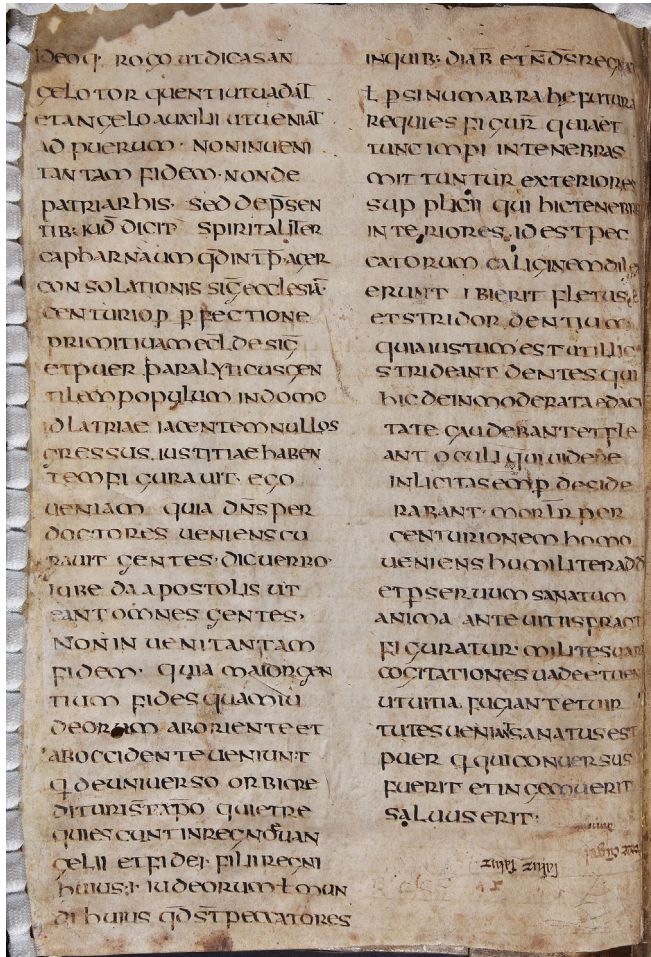 ideoq· rogo utdicas an
gelo torquenti ut uadat
et angelo auxilii ut ueniat
ad puerum· non inueni
tantam fidem· non de
patriarhis· sed de psen
tib: iud dicit spiritaliter
capharnaum qd intp ager
consolationis sig ecclesia
centurio p pfectione
primitiuam ecl de sig
et puer paralyticus gen
tilem populum in domo
idlatriae iacentem nullos
gressus iustitiae haben
tem figurauit· ego
ueniam quia dns per
doctores ueniens cu
rauit gentes· dic uerro·
iube da apostolis ut
eant omnes gentes·
non inueni tantam
fidem· quia maior gen
tium fides quam iu
deorum ab oriente et
ab occidente ueniunt
q de uniuerso orbi cre
dituri st xpo qui et re
quiescunt in regno euan
gelii et fidei· filii regni
huius· i· iudeorum ł mun
di huius qd st peccatores
in quib: diab et n ds regnat
ł p sinum abrahe futura
requies figur quia et
tunc impi in tenebras
mittuntur exteriores
supplicii qui hic tenebras
interiores, id est pec
catorum caliginem dilex
erunt ibi erit fletus
et stridor dentium
quia iustum est ut illic
strideant dentes qui
hic de inmoderata edaci
tate gaudebant et fle
ant oculi qui uidere
inlicitas em p deside
rabant· moral per
centurionem homo
ueniens humiliter ad d
et p seruum sanatum
anima ante uitiis pract
figuratur· milites uan
cogitationes uade et uen
ut uitia fugiant et uir
tutes ueniant sanatus est
puer q qui conuersus
fuerit et ingemuerit
saluus erit·